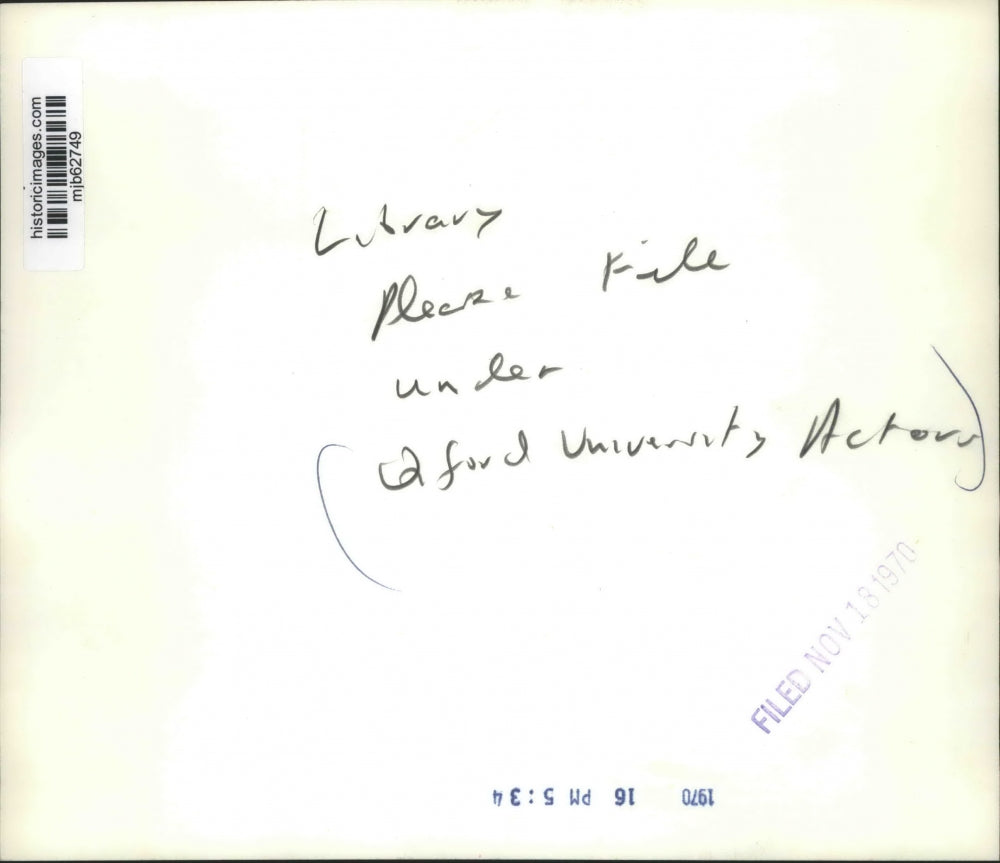 historicimages.com
mjb62749
Library
Please File
under
(Oxford University Actors)
FILED NOV 18 1970
1970 16 PM 5:34